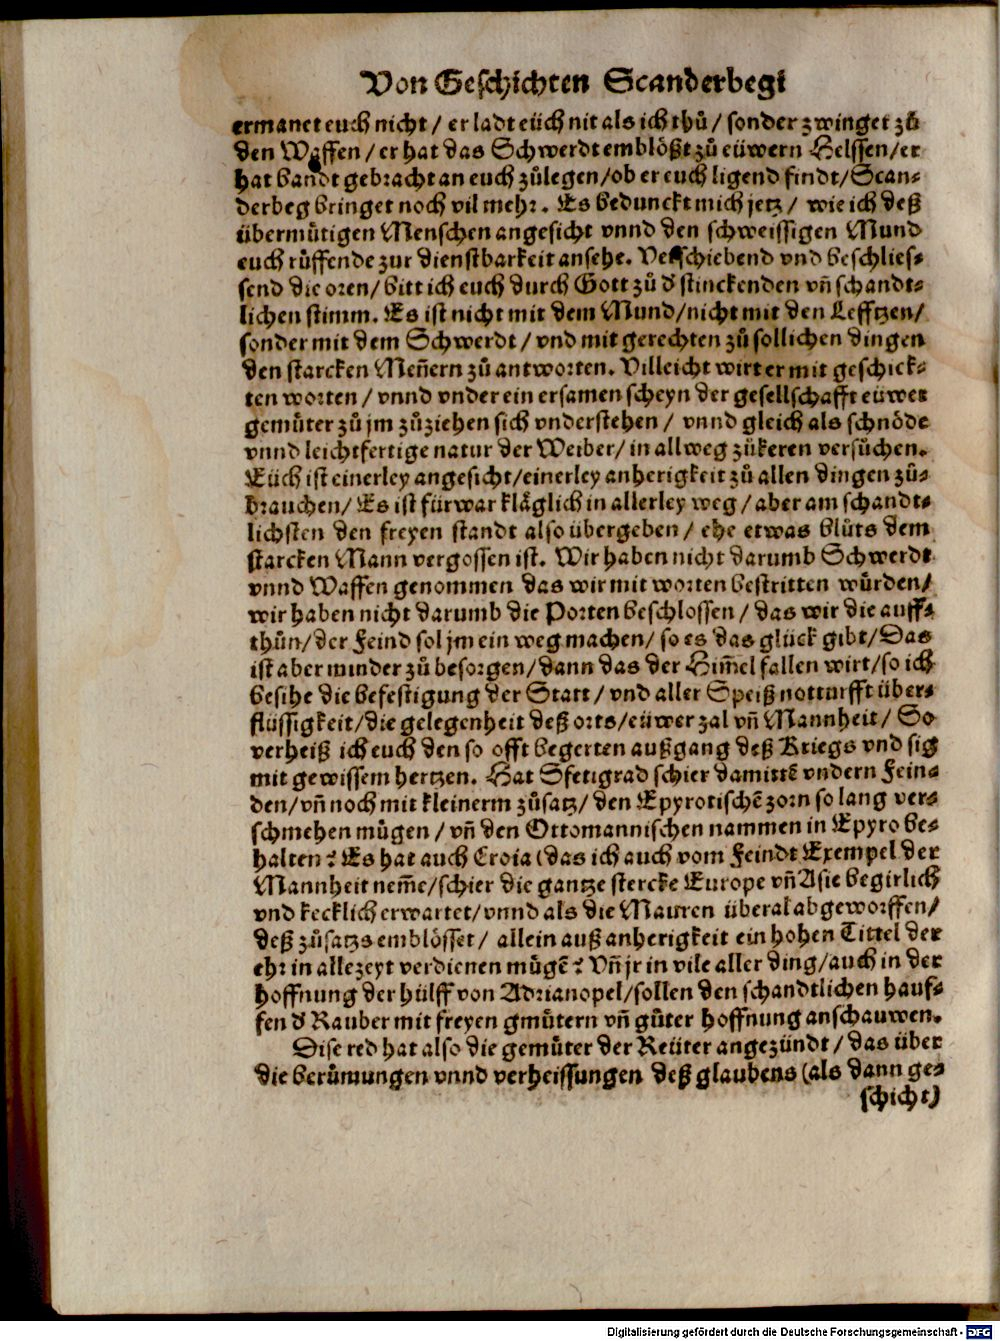 Von Geschichten Scanderbegi
ermanet euch nicht / er ladt eüch nit als ich thů / sonder zwinget zů
den Waffen / er hat das Schwerdt emblößt zů eüwern Helssen / er
hat bandt gebracht an euch zůlegen / ob er euch ligend findt / Scan-
derbeg bringet noch vil mehr. Es bedunckt mich jetz / wie ich deß
übermůtigen Menschen angesicht vnnd den schweissigen Mund
euch růffende zur dienstbarkeit ansehe. Verschiebend vnd beschlies-
send die oren / bitt ich euch durch Gott zů d̕ stinckenden vñ schandt-
lichen stimm. Es ist nicht mit dem Mund / nicht mit den Lefftzen /
sonder mit dem Schwerdt / vnd mit gerechten zů sollichen dingen
den starcken Meñern zů antworten. Villeicht wirt er mit geschick-
ten worten / vnnd vnder ein ersamen scheyn der gesellschafft eüwer
gemüter zů jm zůziehen sich vnderstehen / vnnd gleich als schnöde
vnnd leichtfertige natur der Weiber / in allweg zůkeren versůchen.
Eüch ist einerley angesicht / einerley anherigkeit zů allen dingen zů-
brauchen / Es ist fürwar kläglich in allerley weg / aber am schandt-
lichsten den freyen standt also übergeben / ehe etwas blůts dem
starcken Mann vergossen ist. Wir haben nicht darumb Schwerdt
vnnd Waffen genommen das wir mit worten bestritten würden /
wir haben nicht darumb die Porten beschlossen / das wir die auff-
thůn / der Feind sol jm ein weg machen / so es das glück gibt / Das
ist aber minder zů besorgen / dann das der Him̃el fallen wirt / so ich
besihe die befestigung der Statt / vnd aller Speiß notturfft über-
flüssigkeit / die gelegenheit deß orts / eüwer zal vñ Mannheit / So
verheiß ich euch den so offt begerten außgang deß Kriegs vnd sig
mit gewissem hertzen. Hat Sfetigrad schier damittẽ vndern Fein-
den / vñ noch mit kleinerm zůsatz / den Epyrotischẽ zorn so lang ver-
schmehen mügen / vñ den Ottomannischen nammen in Epyro be-
halten? Es hat auch Croia (das ich auch vom Feindt Exempel der
Mannheit nem̃e / schier die gantze stercke Europe vñ Asie begirlich
vnd kecklich erwartet / vnnd als die Mauren überal abgeworffen /
deß zůsatzs emblösset / allein auß anherigkeit ein hohen Tittel der
ehr in allezeyt verdienen mügẽ? Vñ jr in vile aller ding / auch in der
hoffnung der hülff von Adrianopel / sollen den schandtlichen hauf-
fen d̕ Rauber mit freyen gmütern vñ gůter hoffnung anschauwen.
Dise red hat also die gemüter der Reüter angezündt / das über
die berůmungen vnnd verheissungen deß glaubens (als dann ge-
schicht)
Digitalisierung gefördert durch die Deutsche Forschungsgemeinschaft - DFG